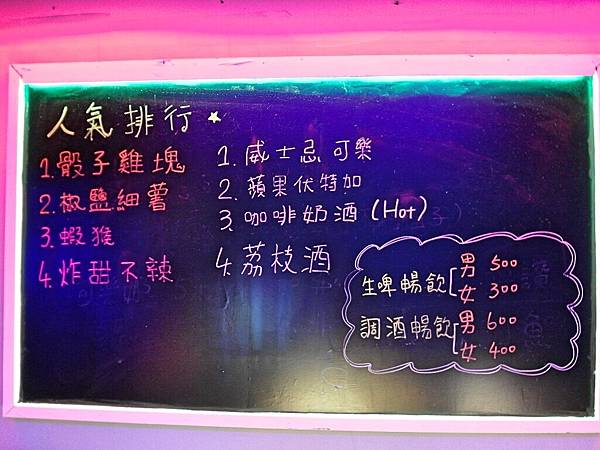 人氣排行
1.骰子雞塊
2.椒鹽細薯
3.蝦猴
4.炸甜不辣
1.威士忌可樂
2.蘋果伏特加
3.咖啡奶酒(Hot)
4.荔枝酒
生啤暢飲 男 500
女 300
調酒暢飲 男 600
女 400